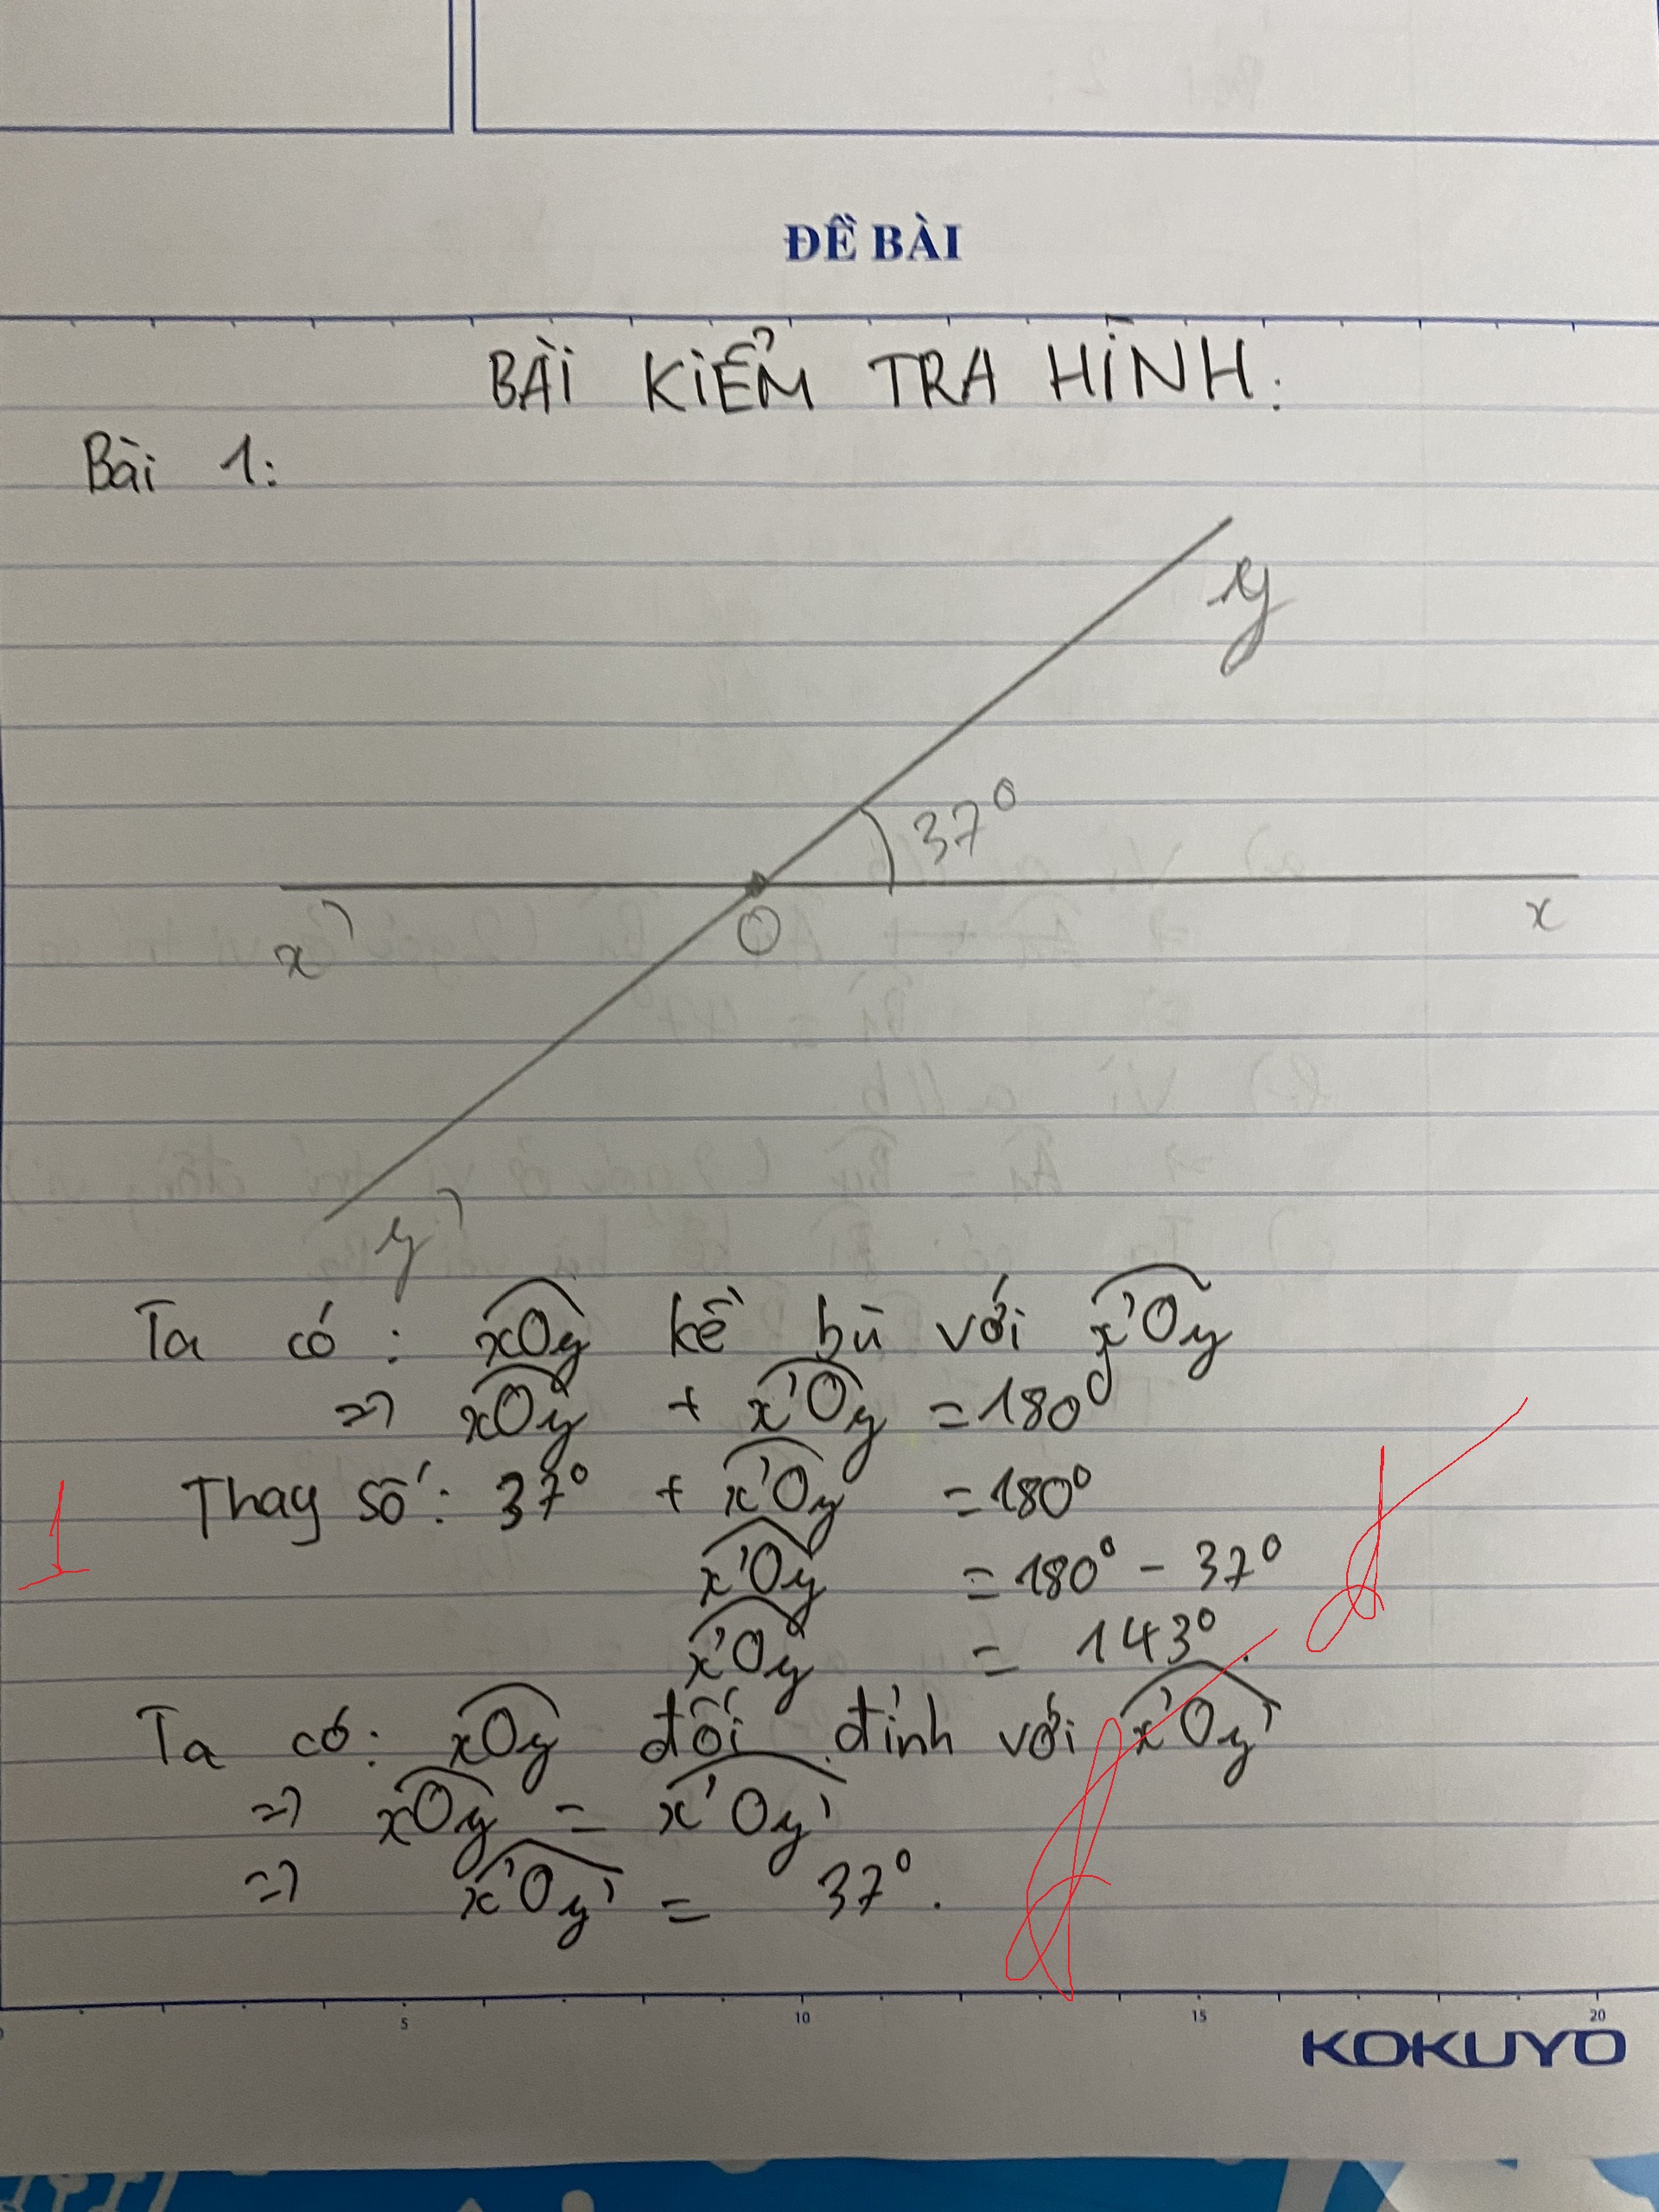 ĐỀ BÀI
BÀI KIỂM TRA HÌNH:
Bài 1:
y
37°
x' O x
y'
Ta có: xOy kề bù với x'Oy
=> xOy + x'Oy = 180°
Thay số: 37° + x'Oy = 180°
1
x'Oy = 180° - 37°
x'Oy = 143°.
Ta có: xOy đối đỉnh với x'Oy'
=> xOy = x'Oy'
=> x'Oy' = 37°.
5 10 15 20
KOKUYO